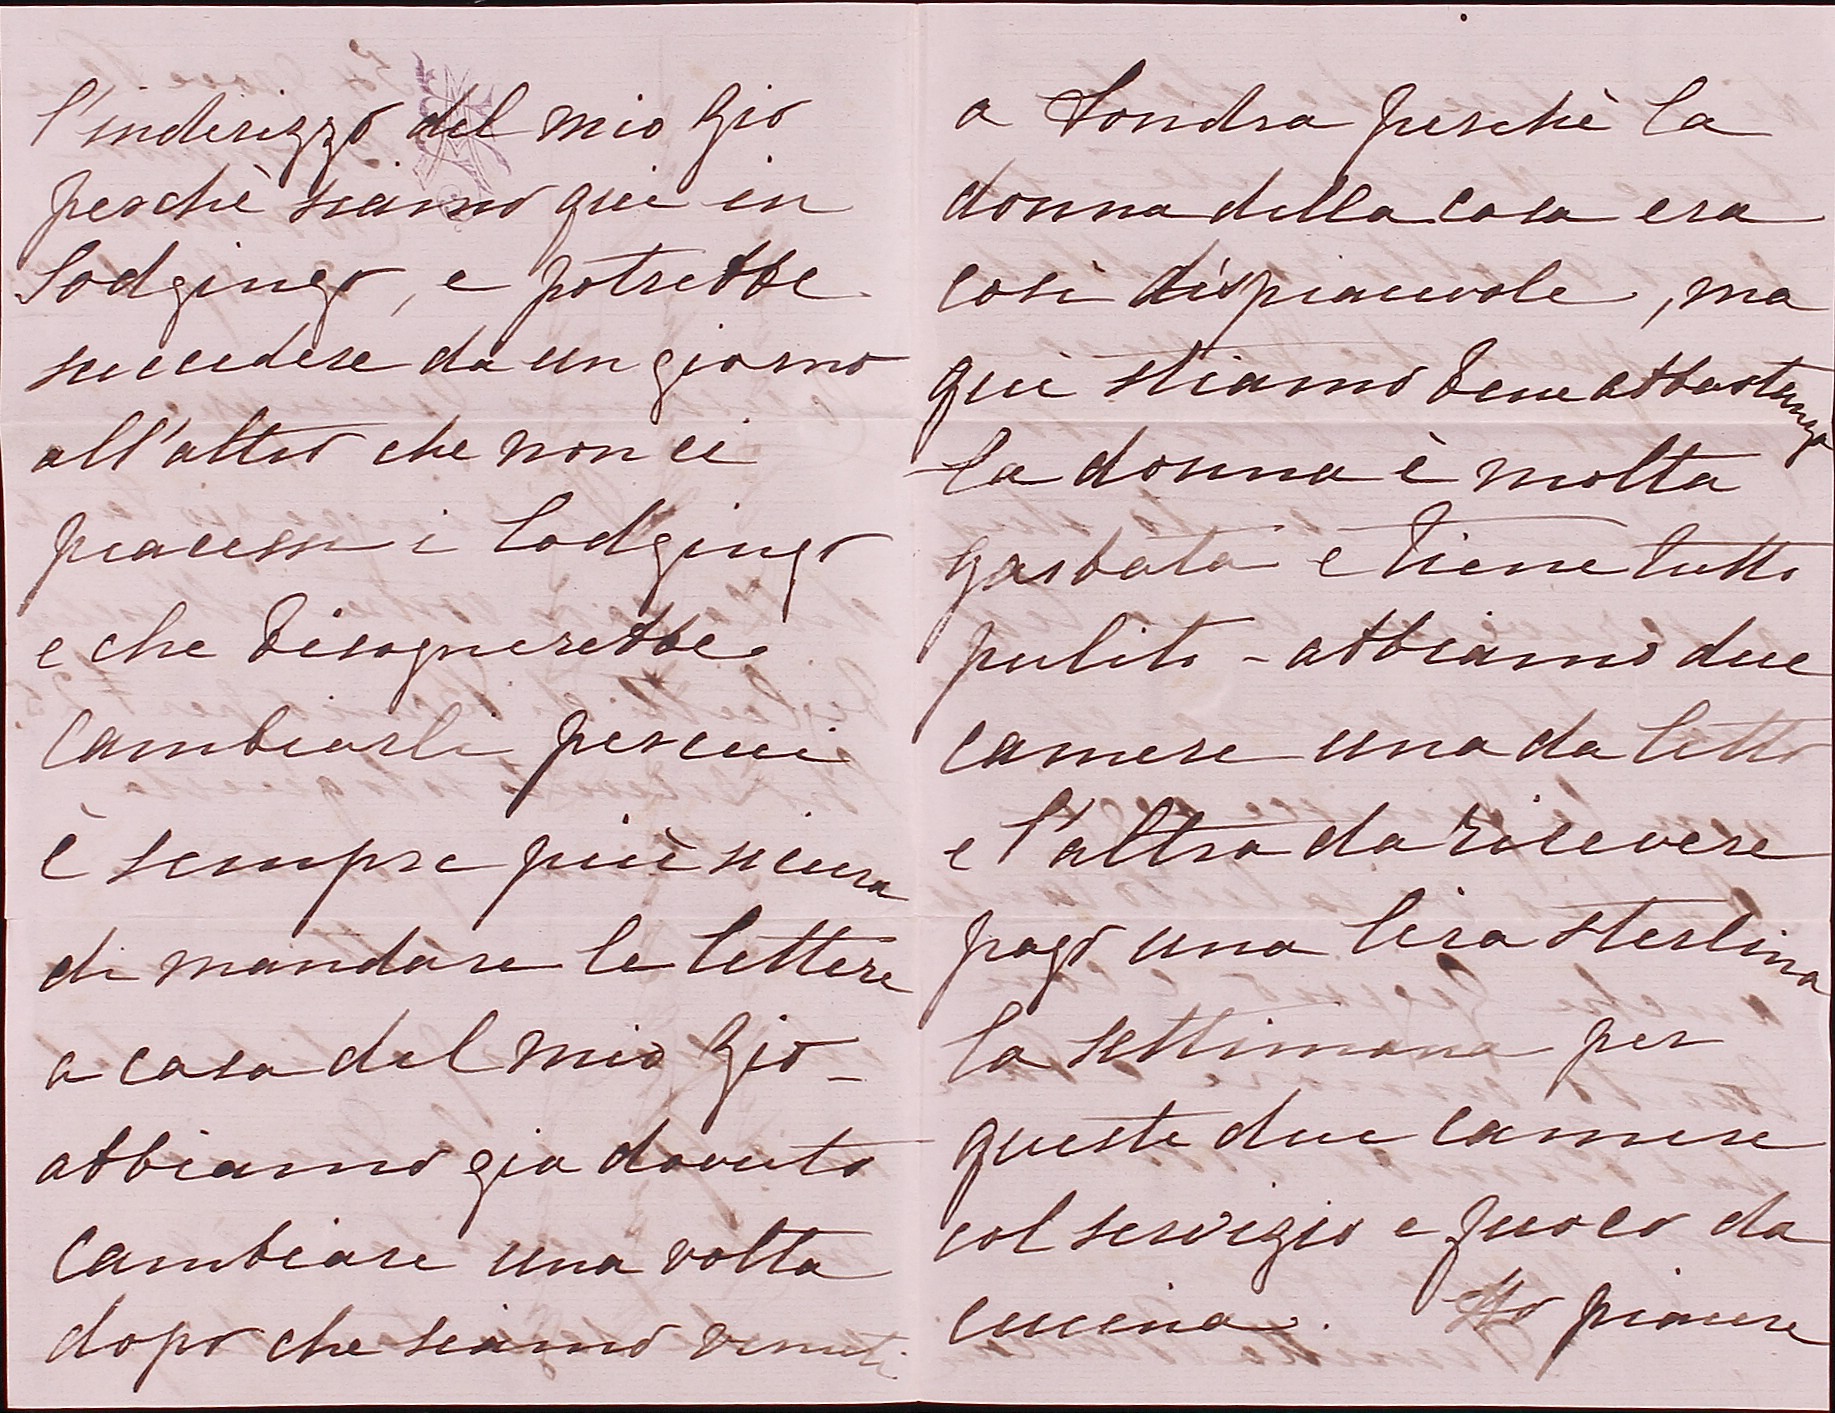 l'indirizzo del mio Gio
perchè siamo qui in
Lodgings, e potrebbe
succedere da un giorno
all'altro che non ci
piacessi i Lodgings
e che bisognerebbe
cambiarli per cui
è sempre più sicura
di mandare le lettere
a casa del mio Gio -
abbiamo gia dovuto
cambiare una volta
dopo che siamo venuti
a Londra perchè la
donna della casa era
così dispiacevole, ma
qui stiamo bene abbastanza
la donna è molta
garbata e tiene tutto
pulito - abbiamo due
camere una da letto
e l'altra da ricevere
pago una lira sterlina
la settimana per
queste due camere
col servizio e fuoco da
cucina. Ho piacere